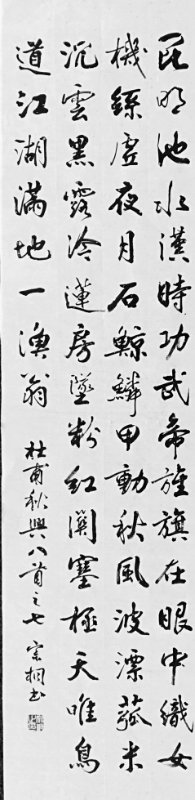 昆明池水漢時功武帝旌旗在眼中織女
機絲虛夜月石鯨鱗甲動秋風波漂菰米
沉雲黑露冷蓮房墜粉紅關塞極天唯鳥
道江湖滿地一漁翁
杜甫秋興八首之七 宗桐书